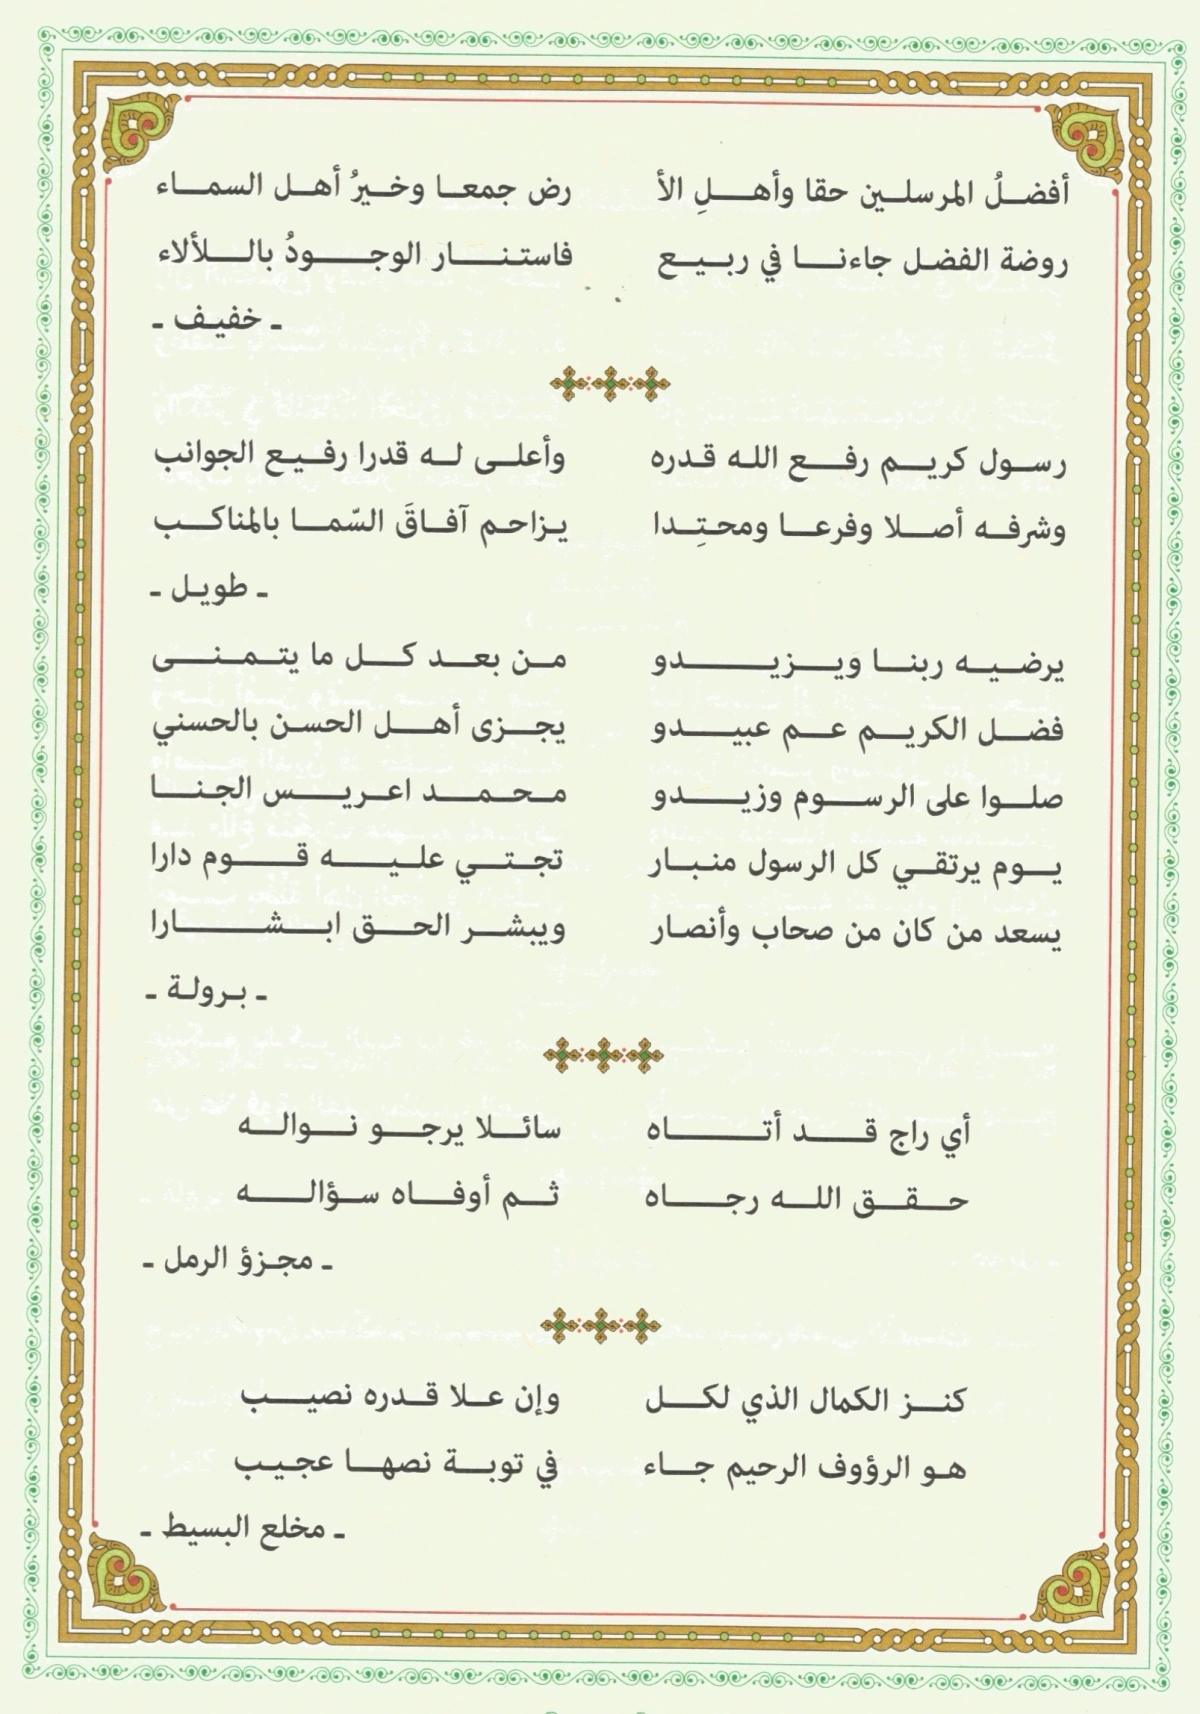 أفضلُ المرسلين حقا وأهلِ الأ رض جمعا وخيرُ أهل السماء
روضة الفضل جاءنا في ربيع فاستنار الوجودُ باللألاء
ـ خفيف ـ
رسول كريم رفع الله قدره وأعلى له قدرا رفيع الجوانب
وشرفه أصلا وفرعا ومحتِدا يزاحم آفاقَ السّما بالمناكب
ـ طويل ـ
يرضيه ربنا ويزيدو من بعد كل ما يتمنى
فضل الكريم عم عبيدو يجزى أهل الحسن بالحسني
صلوا على الرسوم وزيدو محمد اعريس الجنا
يوم يرتقي كل الرسول منبار تجتي عليه قوم دارا
يسعد من كان من صحاب وأنصار ويبشر الحق ابشارا
ـ برولة ـ
أي راج قد أتاه سائلا يرجو نواله
حقق الله رجاه ثم أوفاه سؤاله
ـ مجزؤ الرمل ـ
كنز الكمال الذي لكل وإن علا قدره نصيب
هو الرؤوف الرحيم جاء في توبة نصها عجيب
ـ مخلع البسيط ـ